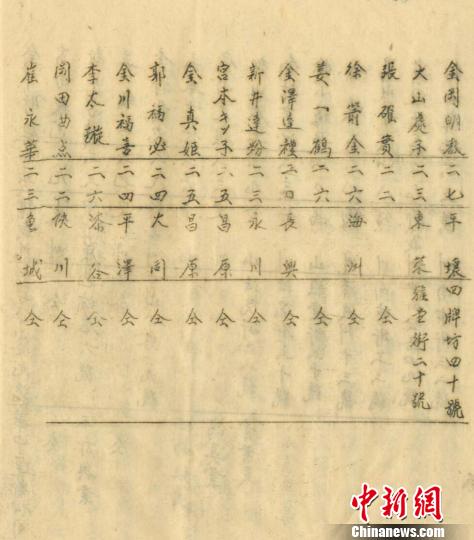 金岡明教 二七 平壤 四牌坊四十號
大山 子 二三 東萊 街二十號
張確實 二二 仝
徐 金 二六 海州 仝
姜一鶴 二六 仝
金澤達 二 長興 仝
新井達 二三 永川 仝
宮本 子 二五 昌原 仝
金真姫 二五 昌原 仝
郭福必 二四 大同 仝
金川福 二四 平澤 仝
李太 二六 漆谷 仝
岡田 点 二二 陜川 仝
崔永華 二三 城 仝
中新网
www.chinanews.com